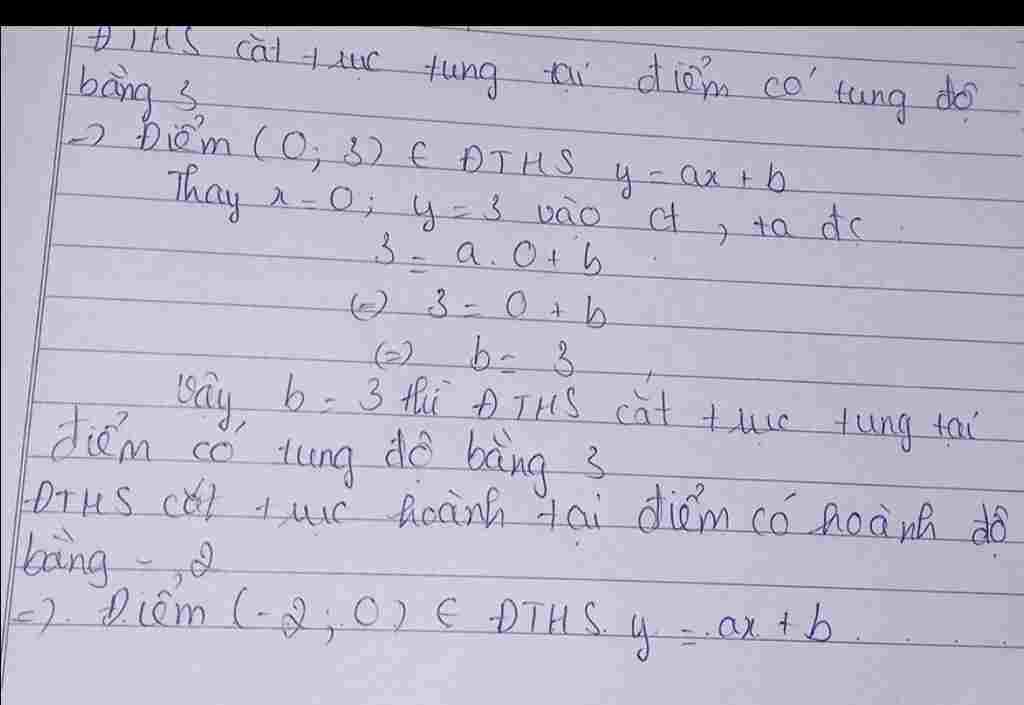 ĐTHS cắt trục tung tại điểm có tung độ
bằng 3
=> Điểm (0; 3) ∈ ĐTHS y = ax + b
Thay x = 0; y = 3 vào ct, ta đc
3 = a.0 + b
(=) 3 = 0 + b
(=) b = 3
Vậy b = 3 thì ĐTHS cắt trục tung tại
điểm có tung độ bằng 3
ĐTHS cắt trục hoành tại điểm có hoành độ
bằng -2
=> Điểm (-2; 0) ∈ ĐTHS y = ax + b